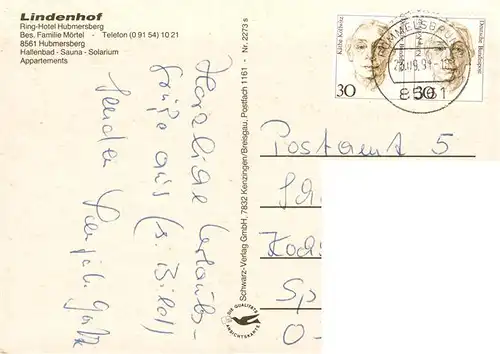 Lindenhof
Ring-Hotel Hubmersberg
Bes. Familie Mörtel - Telefon (0 91 54) 10 21
8561 Hubmersberg
Hallenbad - Sauna - Solarium
Appartements
Herzliche Urlaubs-
grüße aus (s. Bild)
senden
Schwarz-Verlag GmbH, 7832 Kenzingen/Breisgau, Postfach 1161 - Nr. 2273 s
DIE QUALITÄTS
ANSICHTSKARTE
Käthe Kollwitz
30
Deutsche Bundespost
30
8561
Postamt 5
Sch
Koch
Sp
O-